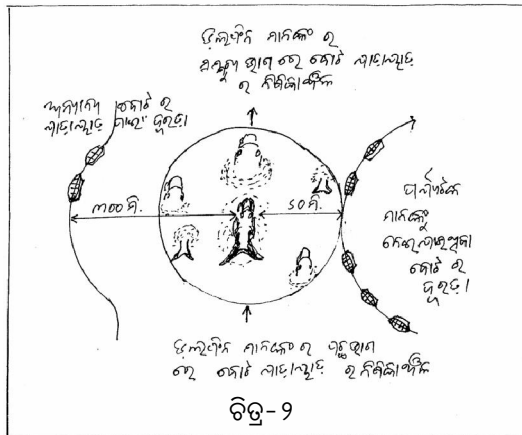 ଡ଼ଲଫିନ ମାନଙ୍କ ର
ସମ୍ମୁଖ ଭାଗ ରେ ବୋଟ ଯାତାୟାତ
ର ନିଷିଦ୍ଧାଞ୍ଚଳ
ଅନ୍ୟାନ୍ୟ ବୋଟ ର
ଯାତାୟାତ ପାଇଁ ଦୂରତା
୩୦୦ ମି.
୫୦ ମି.
ପର୍ଯ୍ୟଟକ
ମାନଙ୍କୁ
ନେଇଯାଉଥିବା
ବୋଟ ର
ଦୂରତା
ଡ଼ଲଫିନ ମାନଙ୍କ ର ପଛଭାଗ
ରେ ବୋଟ ଯାତାୟାତ ର ନିଷିଦ୍ଧାଞ୍ଚଳ
ଚିତ୍ର-୨